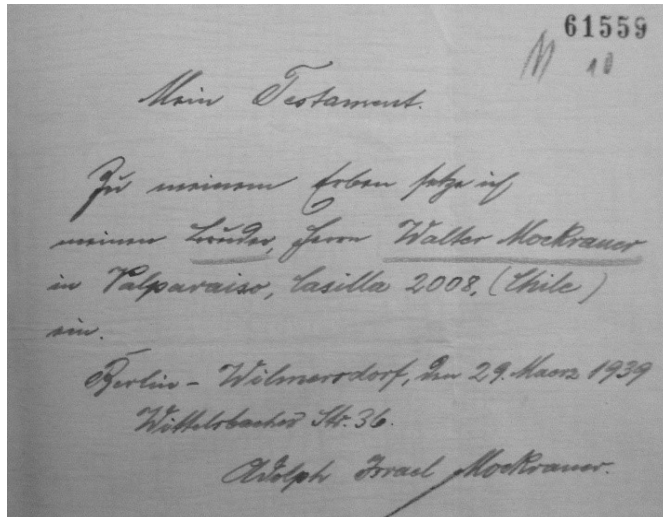 61559
M 10
Mein Testament.
Zu meinem Erben setze ich
meinen Bruder, Herrn Walter Mockrauer
in Valparaiso, Casilla 2008, (Chile)
ein.
Berlin - Wilmersdorf, den 29. Maerz 1939
Wittelsbacher Str. 36.
Adolph Israel Mockrauer.